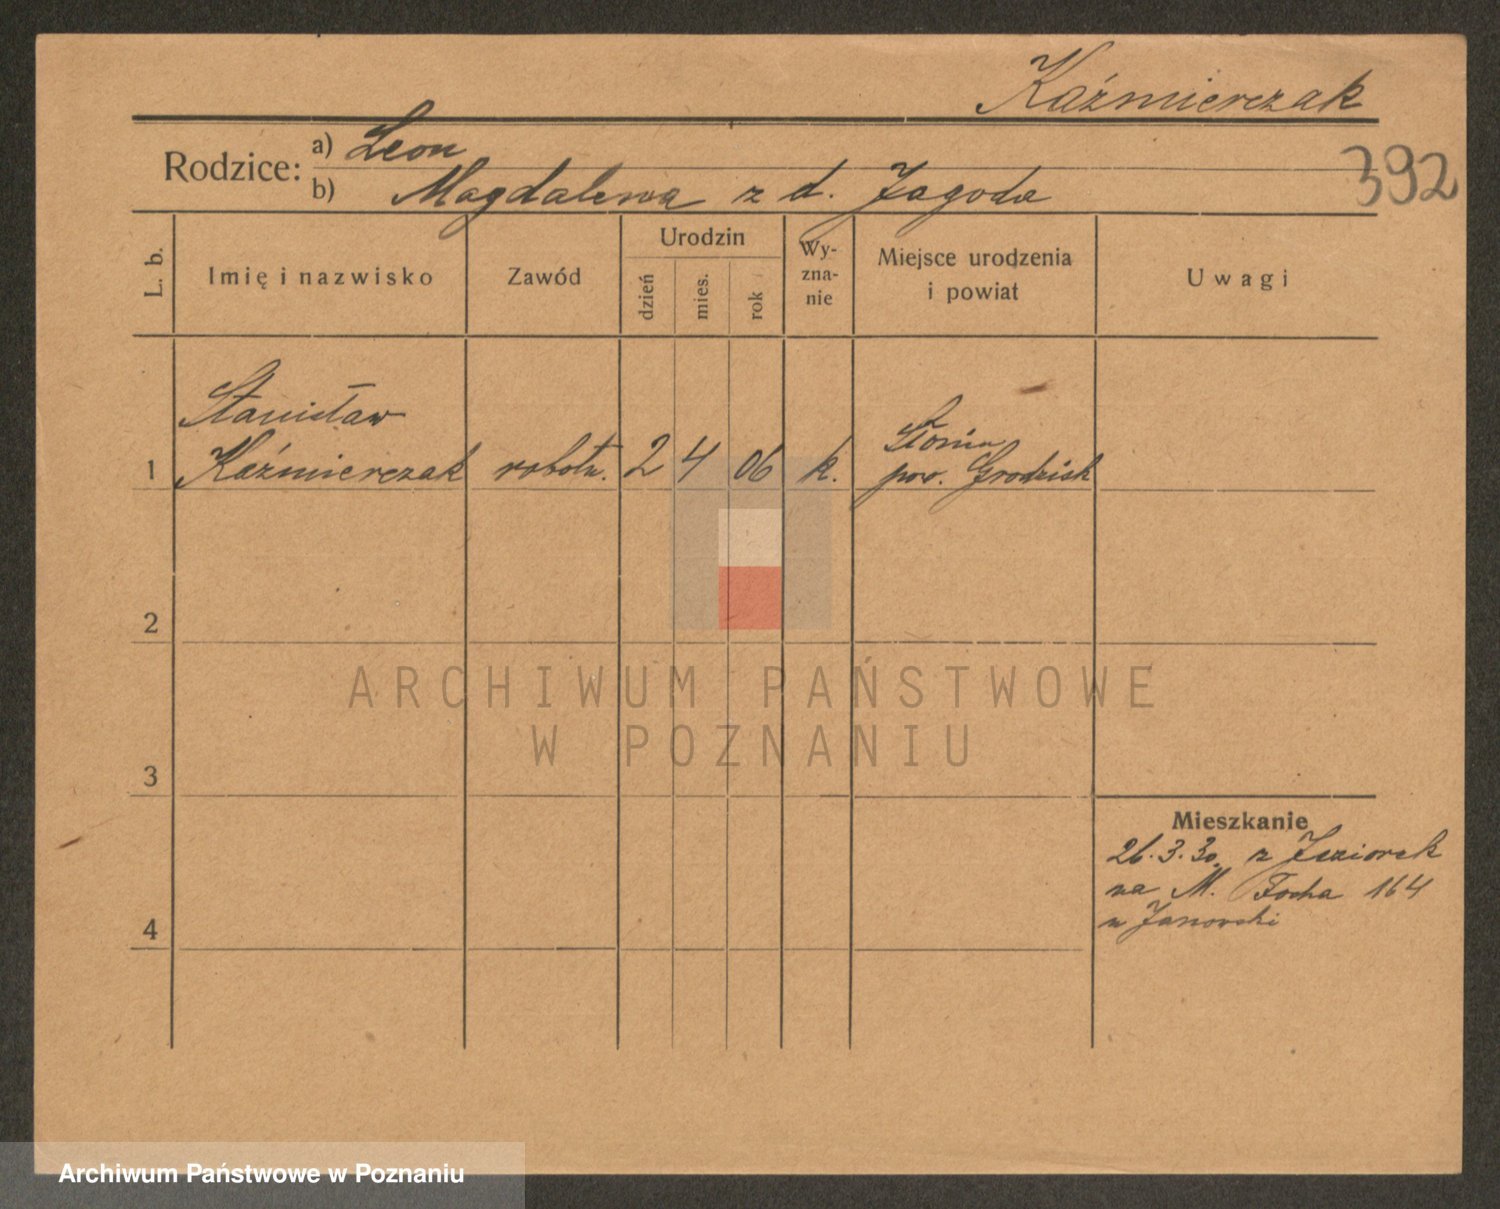 Kaźmierczak
392
Rodzice: a) Leon
b) Magdalena z d. Jagoda
L. b.
Imię i nazwisko
Zawód
Urodzin
dzień
mies.
rok
Wy-
zna-
nie
Miejsce urodzenia
i powiat
Uwagi
Stanisław
1 Kaźmierczak robotn. 2 4 06 k.
pow. Grodzisk
2
3
4
Mieszkanie
26.3.30. z Jeziorek
na M. Focha 164
u Janowski
ARCHIWUM PAŃSTWOWE
W POZNANIU
Archiwum Państwowe w Poznaniu